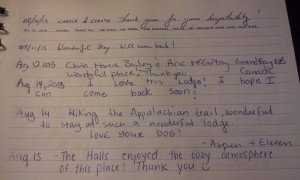 08/10/13 thank you for your hospitality!
08/11/13 Wonderful Stay - Will come back!
Aug 12 2013 Chris Marie Bayley n Aric McCarthy Grand Bay NB
Wonderful place. Thank you Canada
Aug 14, 2013 I love this Lodge! I hope I
can come back soon!
Aug 14 Hiking the Appalachian trail, wonderful
to stay at such a wonderful lodge.
LOVE YOUR DOG!
- Aspen + Eleven
Aug 15 - The Halls enjoyed the cozy atmosphere
of this place! Thank you